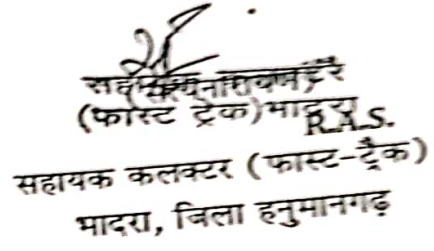 (फास्ट ट्रेक) भादरा
R.A.S.
सहायक कलक्टर (फास्ट-ट्रैक)
भादरा, जिला हनुमानगढ़